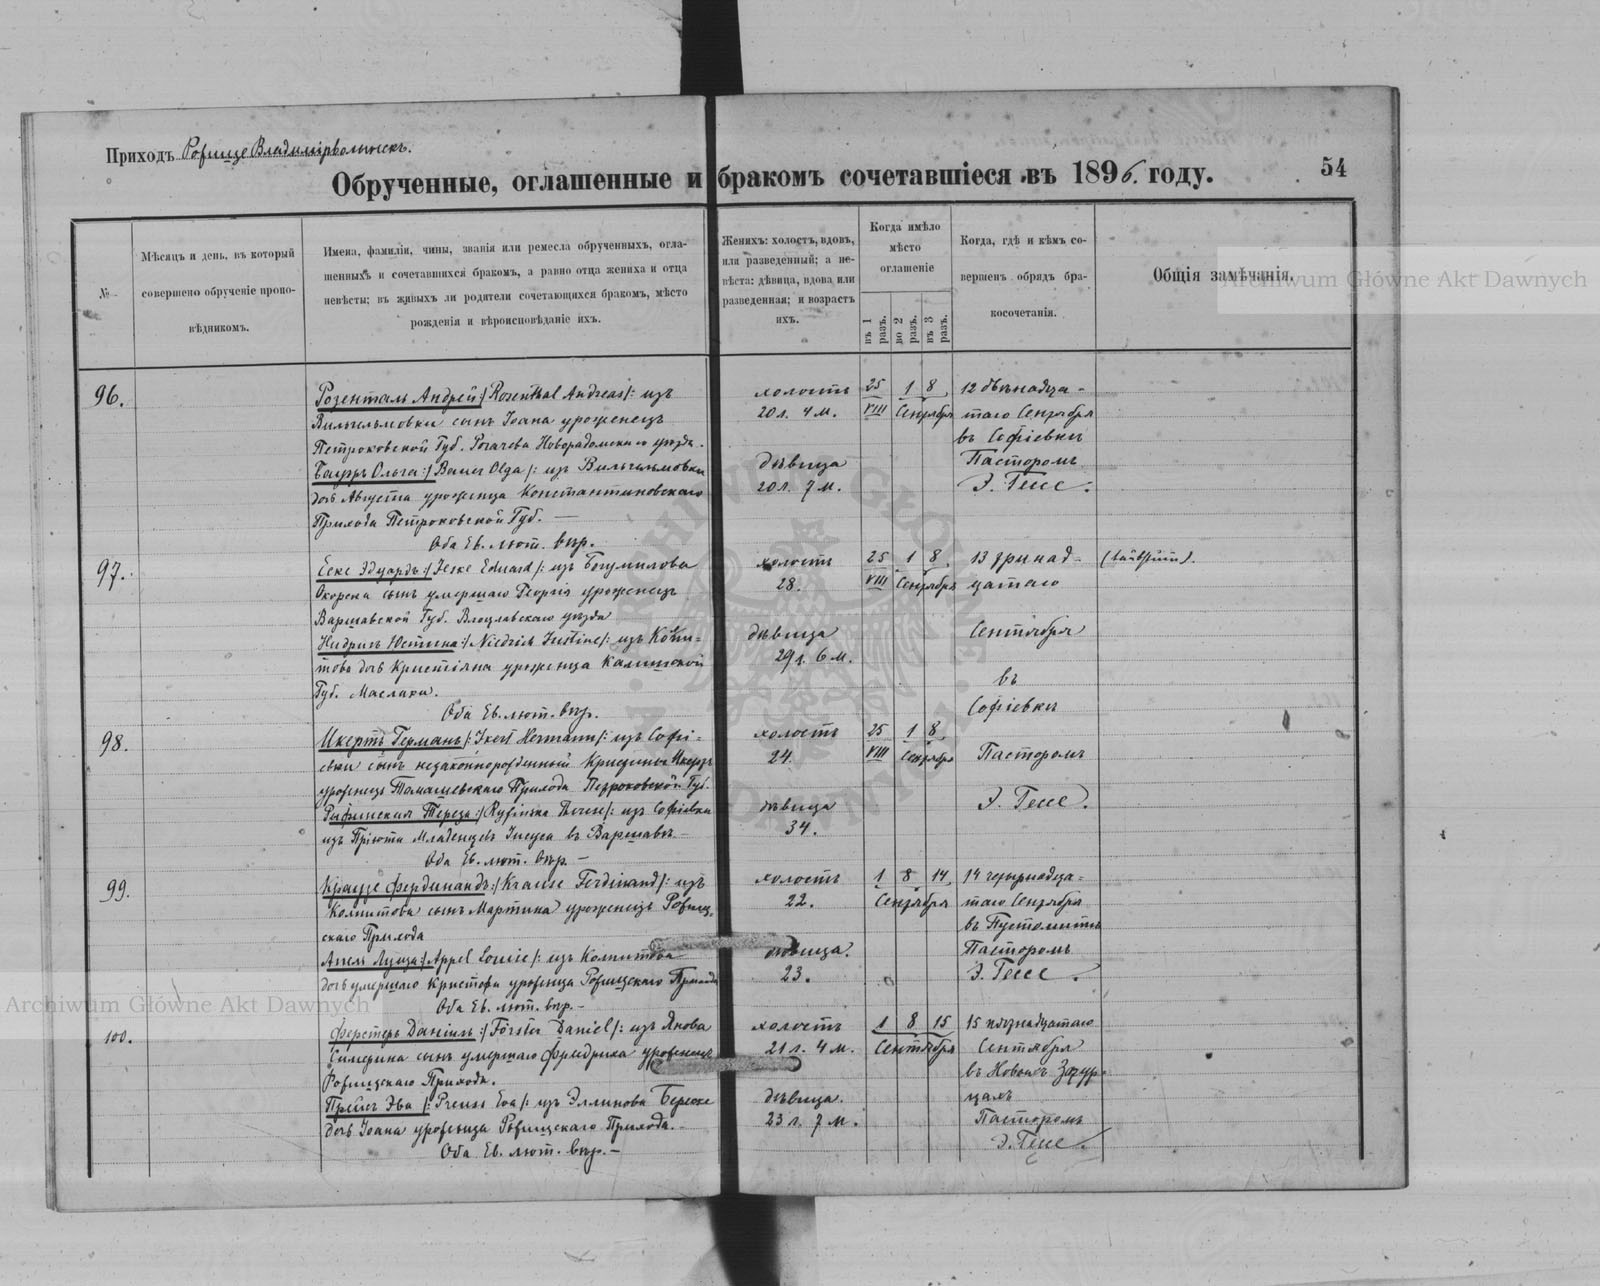 Приходъ Рожище Владимірволынскъ.
Обрученные, оглашенные и бракомъ сочетавшіеся въ 1896. году.
54
№
Мѣсяцъ и день, въ который
совершено обрученіе пропо-
вѣдникомъ.
Имена, фамиліи, чины, званія или ремесла обрученныхъ, огла-
шенныхъ и сочетавшихся бракомъ, а равно отца жениха и отца
невѣсты; въ живыхъ ли родители сочетающихся бракомъ, мѣсто
рожденія и вѣроисповѣданіе ихъ.
Женихъ: холостъ, вдовъ,
или разведенный; а не-
вѣста: дѣвица, вдова или
разведенная; и возрастъ
ихъ.
Когда имѣло
мѣсто
оглашеніе
въ 1 разъ.
во 2 разъ.
въ 3 разъ.
Когда, гдѣ и кѣмъ со-
вершенъ обрядъ бра-
косочетанія.
Общія замѣчанія.
96.
Розенталь Андрей /: Rosenthal Andreas :/ изъ
Вильгельмовки сынъ Іоана уроженецъ
Петроковской Губ. Рогачева Новорадомскаго уѣзда.
Бауэръ Ольга :/ Bauer Olga /: изъ Вильгельмовки
дочь Августа уроженца Константиновскаго
Прихода Петроковской Губ. —
Оба Ев. лют. вѣр.
холостъ
20 л. 4 м.
дѣвица
20 л. 7 м.
25 1 8
VIII Сентября
12 двѣнадца-
таго Сентября
въ Софіевки
Пасторомъ
Э. Гессе.
97.
Еске Эдуардъ :/ Jeske Eduard /: изъ Богумилова
Окорска сынъ умершаго Георгія уроженецъ
Варшавской Губ. Влоцлавскаго уѣзда
Нидрихъ Юстина :/ Niedrich Justine /: изъ Копи-
това дочь Кристіяна уроженца Калишской
Губ. Маслаки.
Оба Ев. лют. вѣр.
холостъ
28.
дѣвица
29 л. 6 м.
25 1 8
VIII Сентября
13 тринад-
цатаго
Сентября
въ
Софіевки
98.
Икертъ Германъ /: Ikert Hermann /: изъ Софі-
евки сынъ незаконнорожденный Кристины Икертъ
уроженецъ Томашевскаго Прихода Петроковской Губ.
Рыфинская Тереза :/ Ryfinska Therese /: изъ Софіевки
изъ Пріюта Младенцевъ Іисуса въ Варшавѣ —
Оба Ев. лют. вѣр. —
холостъ
24.
дѣвица
34.
25 1 8
VIII Сентября
Пасторомъ
Э. Гессе.
99.
Краузе Фердинандъ :/ Krause Ferdinand /: изъ
Копитова сынъ Мартина уроженецъ Рожищ-
скаго Прихода
Апель Луиза :/ Appel Louise /: изъ Копитова
дочь умершаго Кристофа уроженца Рожищскаго Прихода
Оба Ев. лют. вѣр. —
холостъ
22.
дѣвица.
23.
1 8 14
Сентября
14 четырнадца-
таго Сентября
въ Пустомытъ
Пасторомъ
Э. Гессе.
100.
Ферстеръ Даніилъ :/ Förster Daniel /: изъ Янова
сынъ умершаго Фридриха уроженецъ
Рожищскаго Прихода.
Прейсъ Эва /: Preuss Eva /: изъ Эллинова Береске
дочь Іоана уроженца Рожищскаго Прихода. —
Оба Ев. лют. вѣр. —
холостъ
21 л. 4 м.
дѣвица.
23 л. 7 м.
1 8 15
Сентября
15 пятнадцатаго
Сентября
въ Новыхъ Затур-
цахъ
Пасторомъ
Э. Гессе.
Archiwum Główne Akt Dawnych
Archiwum Główne Akt Dawnych